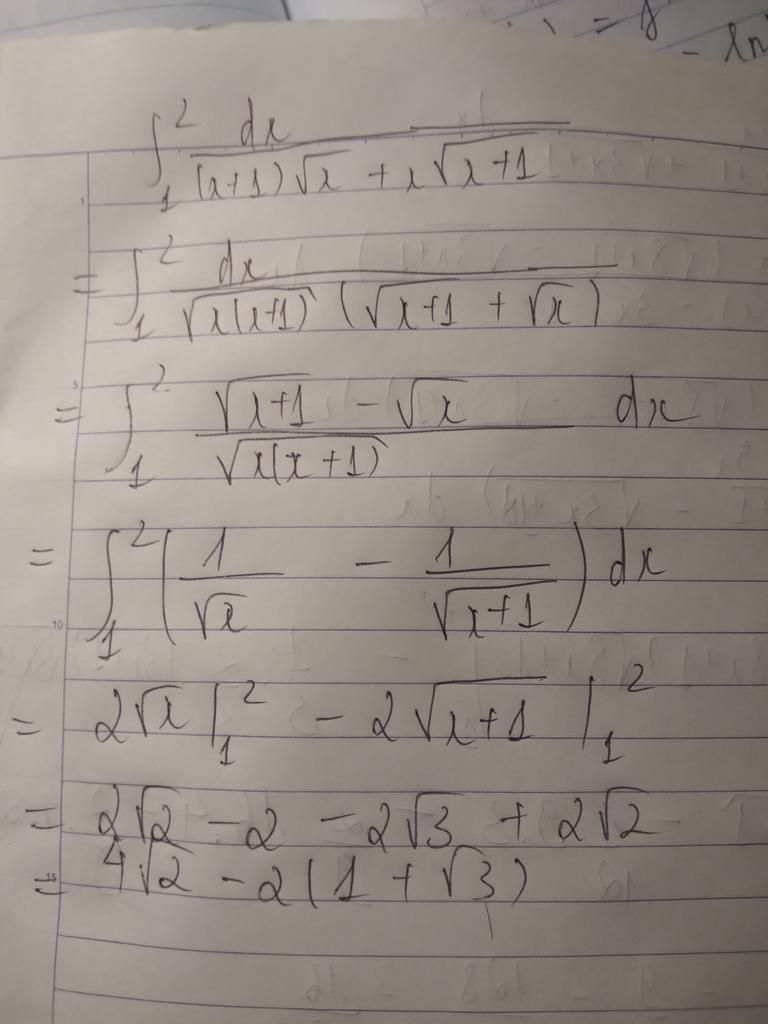 = 8
- ln
∫₁² dx / ((x+1)√x + x√(x+1))
= ∫₁² dx / (√(x(x+1)) (√(x+1) + √x))
= ∫₁² (√(x+1) - √x) / √(x(x+1)) dx
= ∫₁² (1/√x - 1/√(x+1)) dx
= 2√x |₁² - 2√(x+1) |₁²
= 2√2 - 2 - 2√3 + 2√2
= 4√2 - 2(1 + √3)